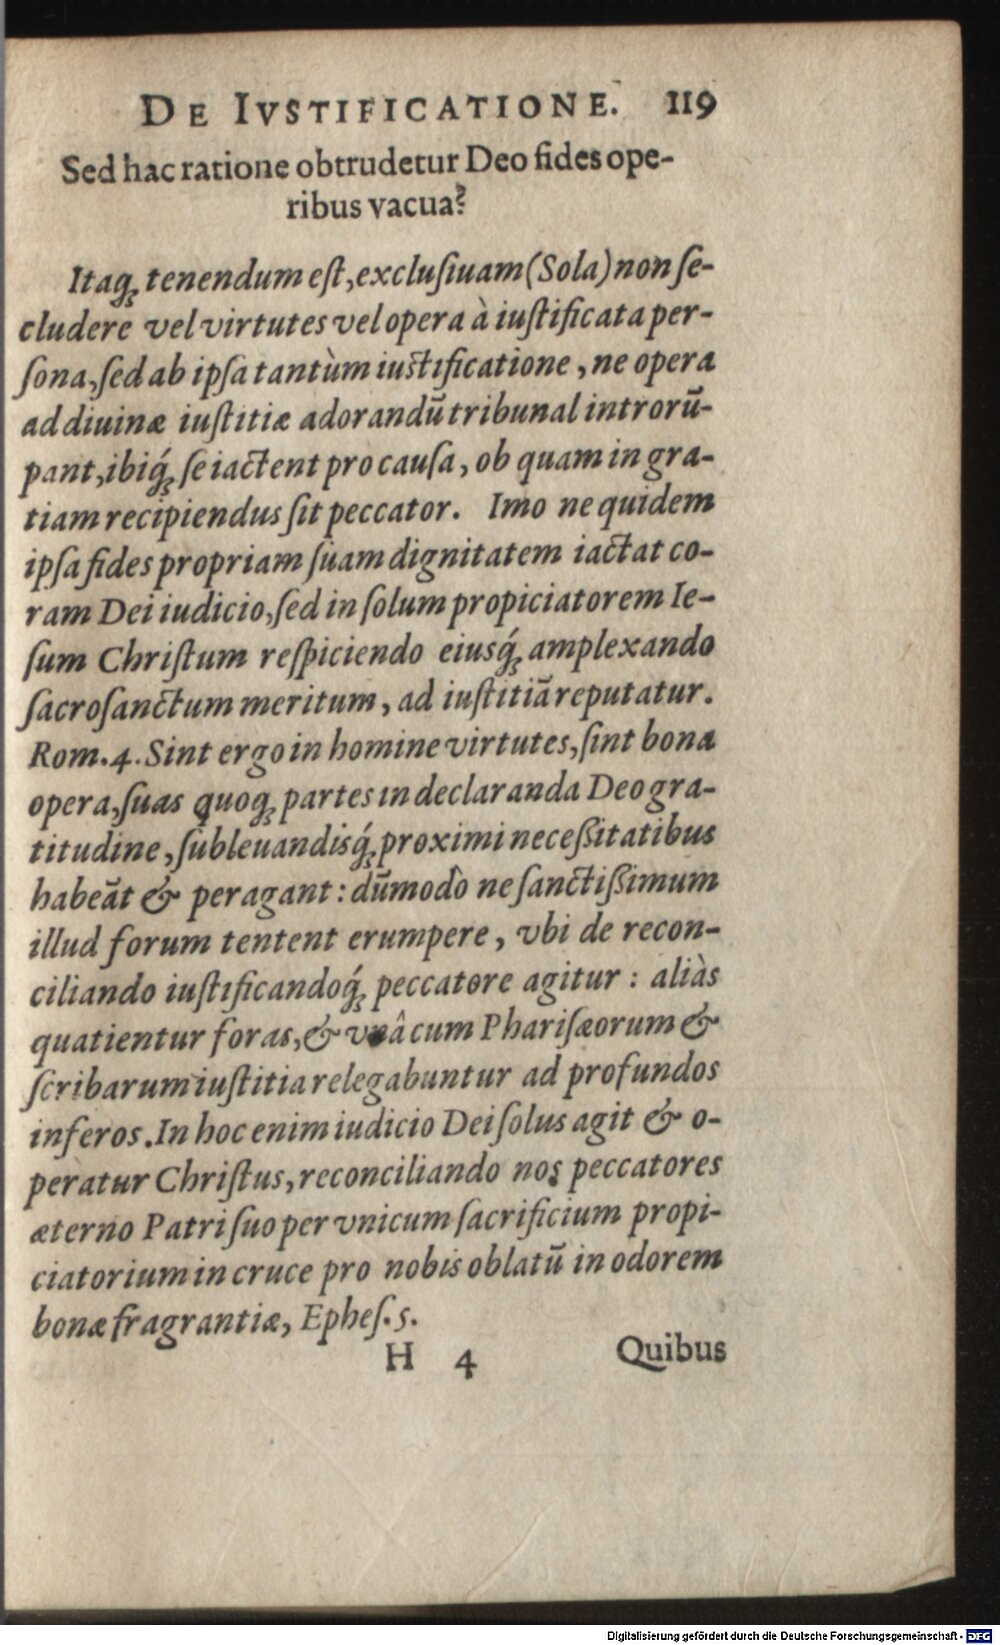 DE IVSTIFICATIONE. 119
Sed hac ratione obtrudetur Deo fides ope-
ribus vacua?
Itaq́; tenendum est, exclusiuam (Sola) non se-
cludere vel virtutes vel opera à iustificata per-
sona, sed ab ipsa tantùm iustificatione, ne opera
ad diuinæ iustitiæ adorandū tribunal introrū-
pant, ibiq́; se iactent pro causa, ob quam in gra-
tiam recipiendus sit peccator. Imò ne quidem
ipsa fides propriam suam dignitatem iactat co-
ram Dei iudicio, sed in solum propiciatorem Ie-
sum Christum respiciendo eiusq́; amplexando
sacrosanctum meritum, ad iustitiā reputatur.
Rom. 4. Sint ergo in homine virtutes, sint bona
opera, suas quoq; partes in declaranda Deo gra-
titudine, subleuandisq́; proximi necessitatibus
habeāt & peragant: dūmodò ne sanctissimum
illud forum tentent erumpere, vbi de recon-
ciliando iustificandoq́; peccatore agitur: aliàs
quatientur foras, & vnâ cum Pharisæorum &
scribarum iustitia relegabuntur ad profundos
inferos. In hoc enim iudicio Dei solus agit & o-
peratur Christus, reconciliando nos peccatores
æterno Patri suo per vnicum sacrificium propi-
ciatorium in cruce pro nobis oblatū in odorem
bonæ fragrantiæ, Ephes. 5.
H 4 Quibus
Digitalisierung gefördert durch die Deutsche Forschungsgemeinschaft - DFG